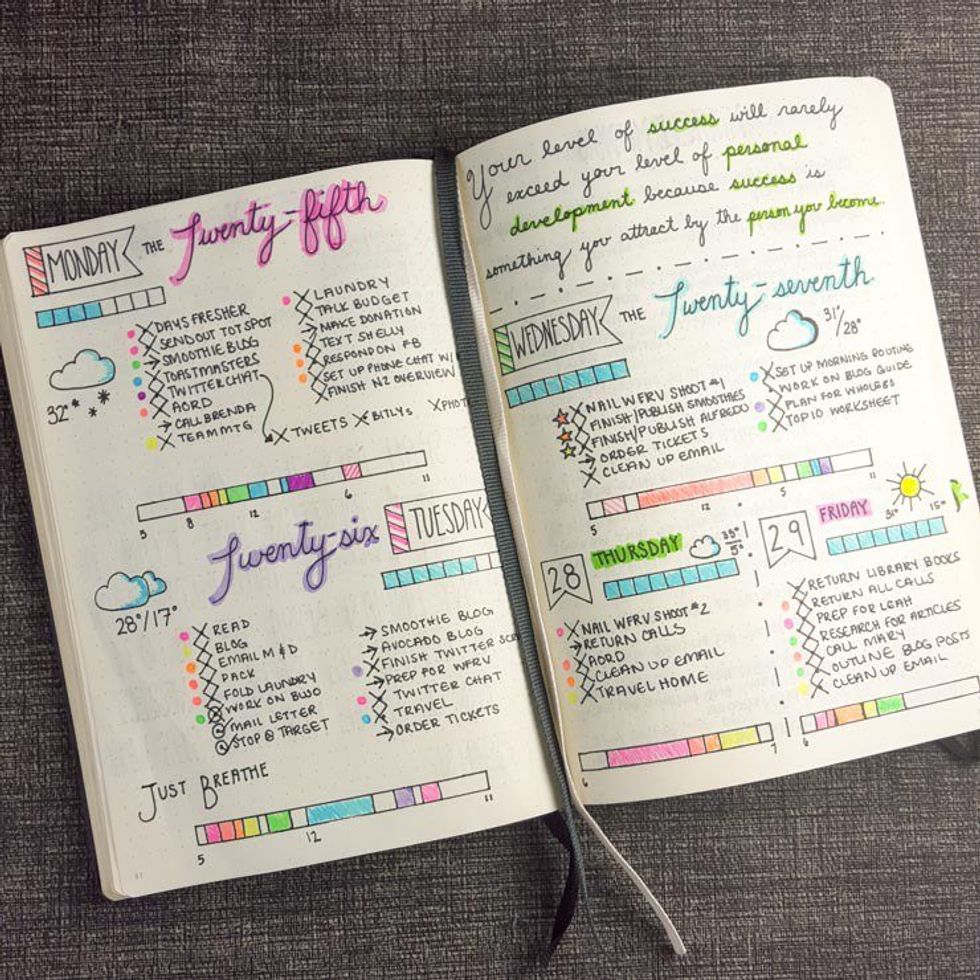 MONDAY THE Twenty-fifth
32°
X DAYS FRESHER
X SENDOUT TOTSPOT
→ SMOOTHIE BLOG
X TOASTMASTERS
X TWITTERCHAT
X AORD
→ CALL BRENDA
X TEAM MTG
X LAUNDRY
X TALK BUDGET
→ MAKE DONATION
→ TEXT SHELLY
X RESPOND ON FB
X SET UP PHONE CHAT W/
X FINISH N2 OVERVIEW
X TWEETS X BITLYS X PHOT
5 8 12 6 11
Twenty-six TUESDAY
28°/17°
X READ
X BLOG
X EMAIL M & D
X PACK
X FOLD LAUNDRY
X WORK ON BWO
MAIL LETTER
STOP @ TARGET
→ SMOOTHIE BLOG
→ AVOCADO BLOG
X FINISH TWITTER SCH
→ PREP FOR WFRV
X TWITTER CHAT
X TRAVEL
→ ORDER TICKETS
JUST BREATHE
5 12 11
Your level of success will rarely
exceed your level of personal
development because success is
something you attract by the person you become.
WEDNESDAY THE Twenty-seventh
31°/28°
X NAIL WFRV SHOOT #1
X FINISH/PUBLISH SMOOTHIES
X FINISH/PUBLISH ALFREDO
→ ORDER TICKETS
X CLEAN UP EMAIL
X SET UP MORNING ROUTINE
X WORK ON BLOG GUIDE
X PLAN FOR WHOLE30
X TOP 10 WORKSHEET
5 12 5 11
28 THURSDAY
35°
5°
X NAIL WFRV SHOOT #2
→ RETURN CALLS
X AORD
X CLEAN UP EMAIL
X TRAVEL HOME
6 7
29 FRIDAY
31° 15°
X RETURN LIBRARY BOOKS
X RETURN ALL CALLS
X PREP FOR LEAH
X RESEARCH FOR ARTICLES
X CALL MARY
X OUTLINE BLOG POSTS
X CLEAN UP EMAIL
6